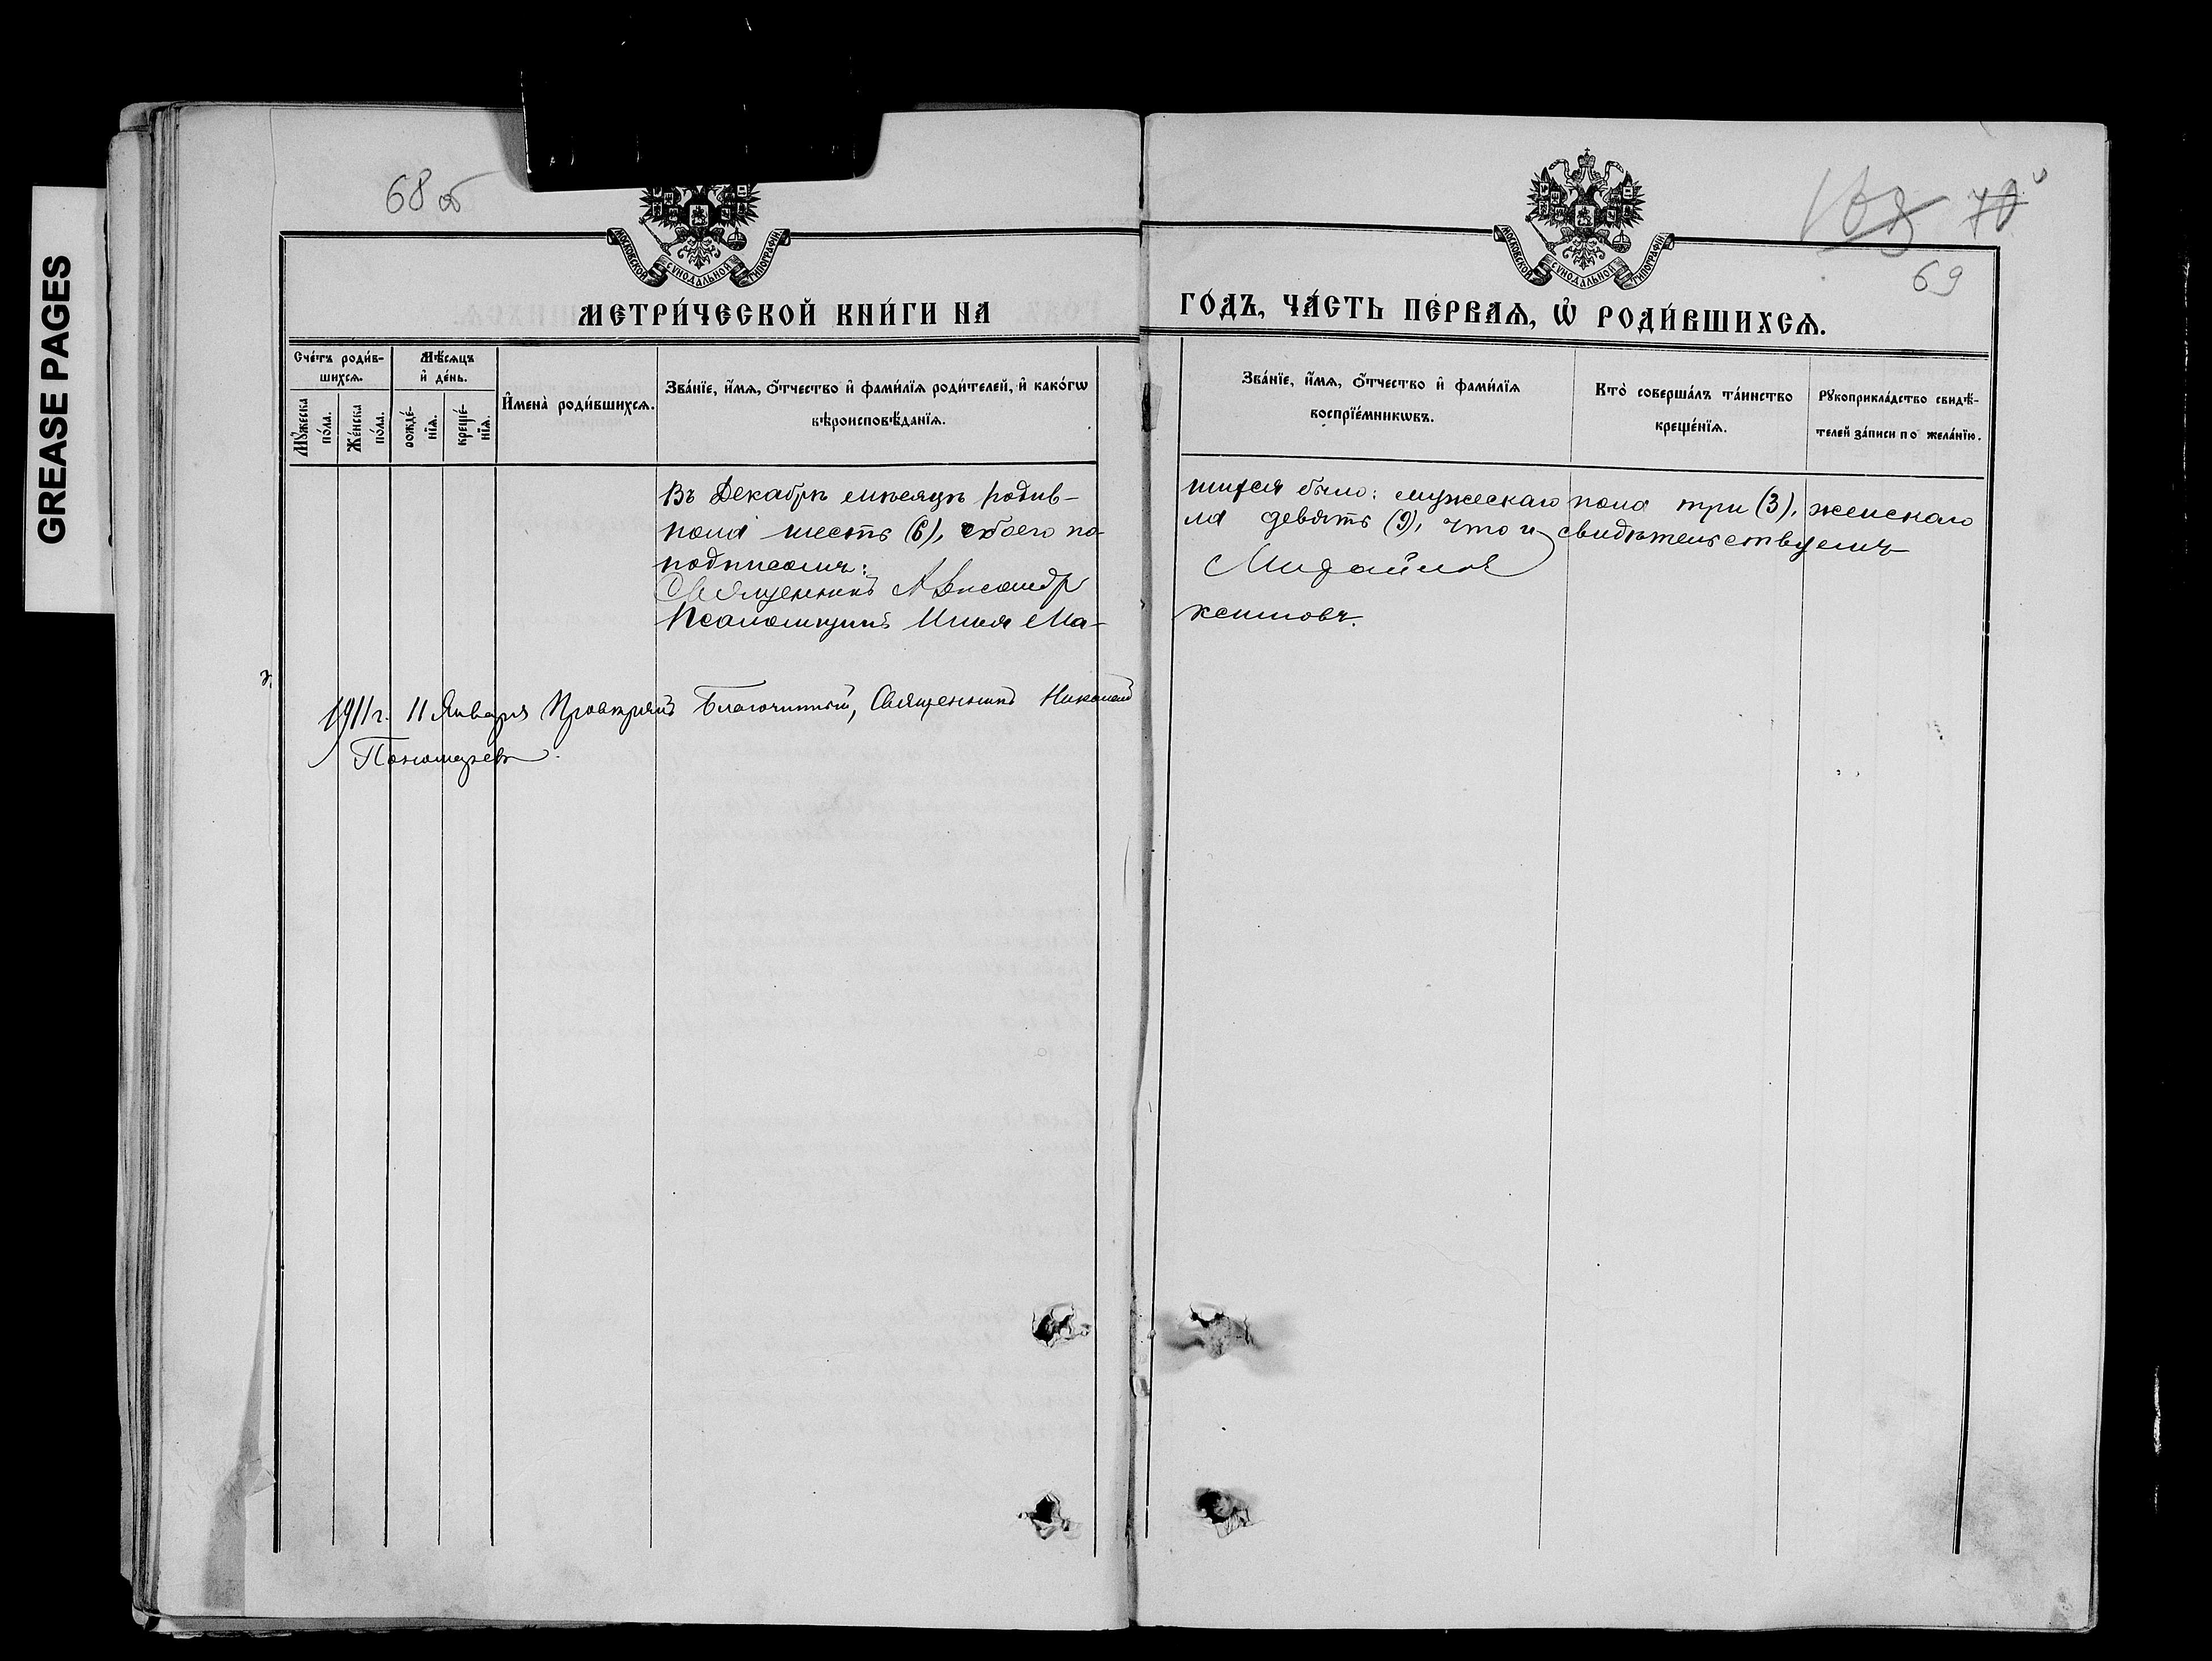 GREASE PAGES
68 об
МОСКОВСКОЙ СѴНОДАЛЬНОЙ ТИПОГРАФІИ
МЕТРИ́ЧЕСКОЙ КНИ́ГИ НА
Сче́тъ роди́в-
шихсѧ.
Мѣ́сѧцъ
и҆ де́нь.
Мꙋ́жеска
по́ла.
Же́нска
по́ла.
рожде́-
нїѧ.
креще́-
нїѧ.
И҆мена̀ роди́вшихсѧ.
Зва́нїе, и҆́мѧ, ѻ҆́тчество и҆ фами́лїѧ роди́телей, и҆ како́гѡ
вѣроисповѣ́данїѧ.
Въ Декабрѣ мѣсяцѣ родив-
пола шесть (6), обоего по-
подписомъ:
Священникъ Александр
Псаломщикъ Илья Ма-
1911 г. 11 Января Провѣрялъ Благочинный, Священникъ Николай
Пономаревъ.
168 70
69
МОСКОВСКОЙ СѴНОДАЛЬНОЙ ТИПОГРАФІИ
ГО́ДЪ, ЧА́СТЬ ПЕ́РВАѦ, Ѡ҆ РОДИ́ВШИХСѦ.
Зва́нїе, и҆́мѧ, ѻ҆́тчество и҆ фами́лїѧ
воспрїе́мникѡвъ.
Кто̀ соверша́лъ та́инство
креще́нїѧ.
Рꙋкоприкла́дство свидѣ́-
телей за́писи по жела́нїю.
шихся было: мужескаго пола три (3), женскаго
ла девять (9), что и свидѣтельствуемъ
Михайлов
ксимовъ.